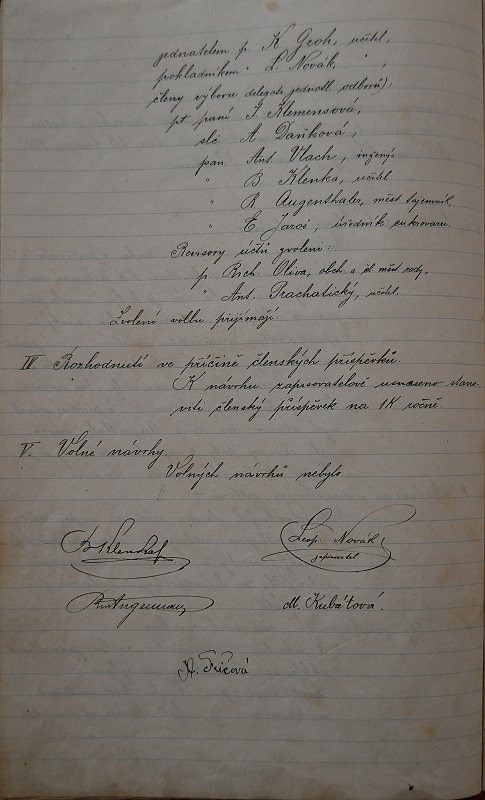 jednatelem p. K. Groh, učitel,
pokladníkem " L. Novák, " ,
členy výboru delegáti jednotl. odborů),
pt. paní I. Klemensová,
slč. A. Daňková,
pan Ant. Vlach, inženýr
" B. Klenka, učitel
" R. Augenthaler, měst. tajemník,
" E. Jaroš, úředník cukrovaru.
Revisory účtů zvoleni:
p. Rich. Oliva, obch. a čl. měst. rady,
" Ant. Prachatický, učitel.
Zvolení volbu přijímají.
IV. Rozhodnutí ve příčině členských příspěvků.
K návrhu zapisovatelově usneseno stano-
viti členský příspěvek na 1K ročně
V. Volné návrhy.
Volných návrhů nebylo
Leop. Novák,
zapisovatel
M. Kubátová.